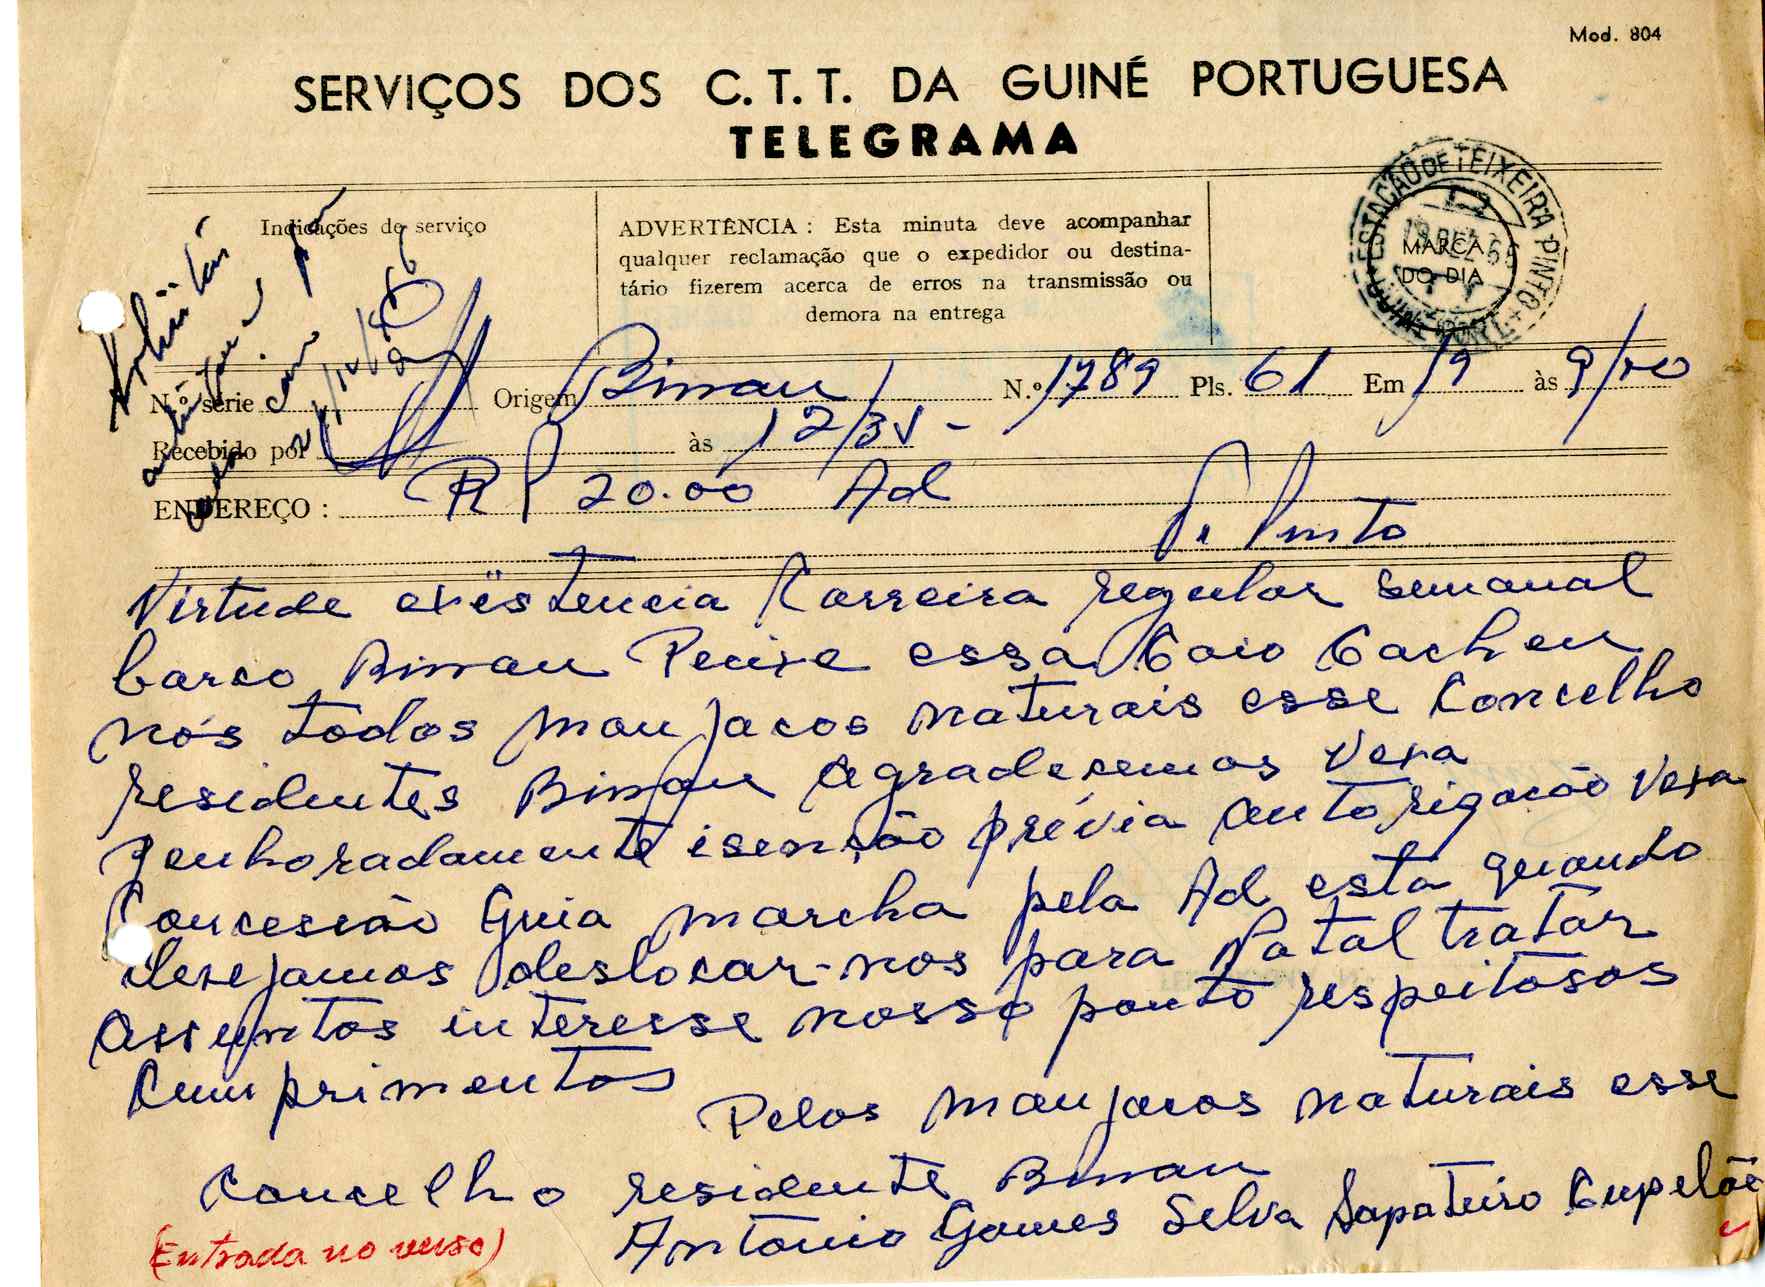 Mod. 804
SERVIÇOS DOS C. T. T. DA GUINÉ PORTUGUESA
TELEGRAMA
Indicações de serviço
ADVERTÊNCIA : Esta minuta deve acompanhar
qualquer reclamação que o expedidor ou destina-
tário fizerem acerca de erros na transmissão ou
demora na entrega
ESTAÇÃO DE TEIXEIRA PINTO
MARCA
DO DIA
N.º série Origem Bissau N.º 1789 Pls. 61 Em 19 às 9/00
Recebido por às 12/35 -
ENDEREÇO : RP 20.00 Ad
T. Pinto
Virtude existencia Carreira regular semanal
barco Bissau Pecixe essa Caio Cacheu
nós todos manjacos naturais esse Concelho
residentes Bissau agradecemos Vexa
penhoradamente isenção prévia autorização Vexa
Concessão Guia marcha pela Ad esta quando
desejamos deslocar-nos para Natal tratar
assuntos interesse nosso ponto respeitosos
Cumprimentos
Pelos manjacos naturais esse
Concelho residente Bissau
António Gomes Silva Sapateiro Cupelão
(Entrada no verso)